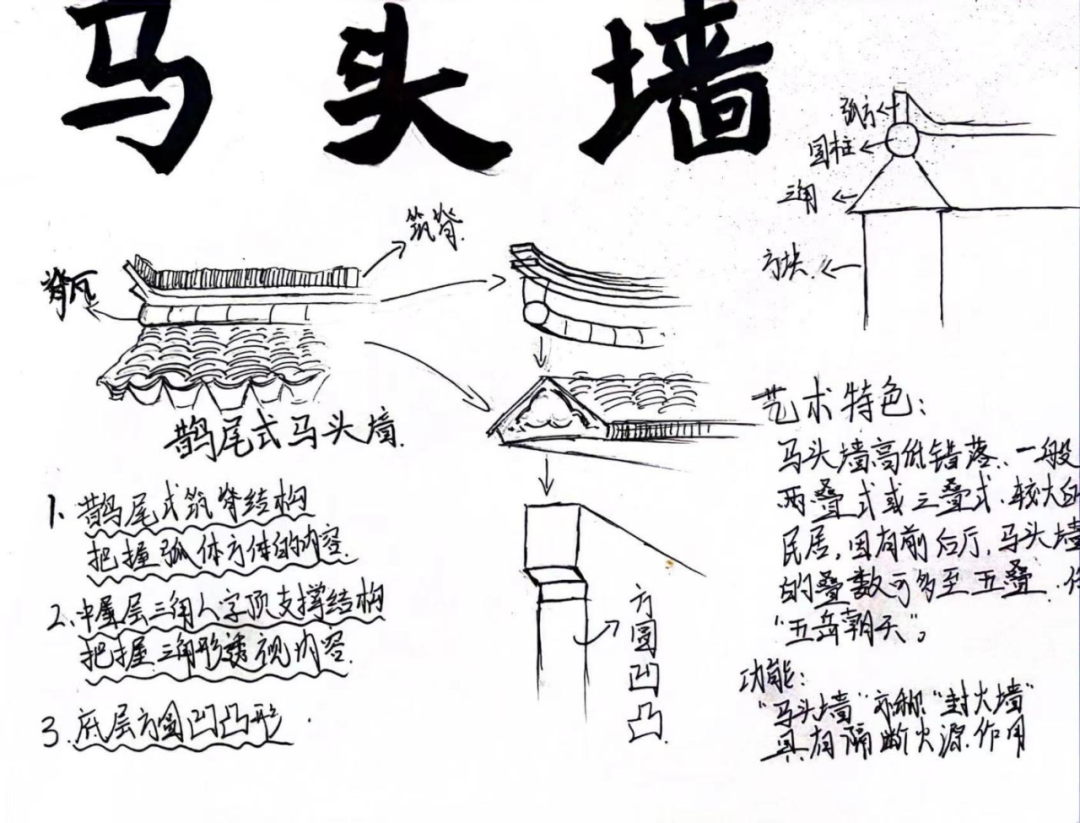 马头墙
弧方
圆柱
三角
方块
筑脊
脊瓦
鹊尾式马头墙.
1、鹊尾式筑脊结构
把握弧体方体的内容.
2、中层三角人字顶支撑结构
把握三角形透视内容.
3.底层方圆凹凸形.
方圆凹凸.
艺术特色:
马头墙高低错落.一般
两叠式或三叠式.较大的
民居,因有前后厅,马头墙
的叠数可多至五叠.
"五岳朝天"。
功能:
"马头墙"亦称"封火墙"
具有隔断火源作用